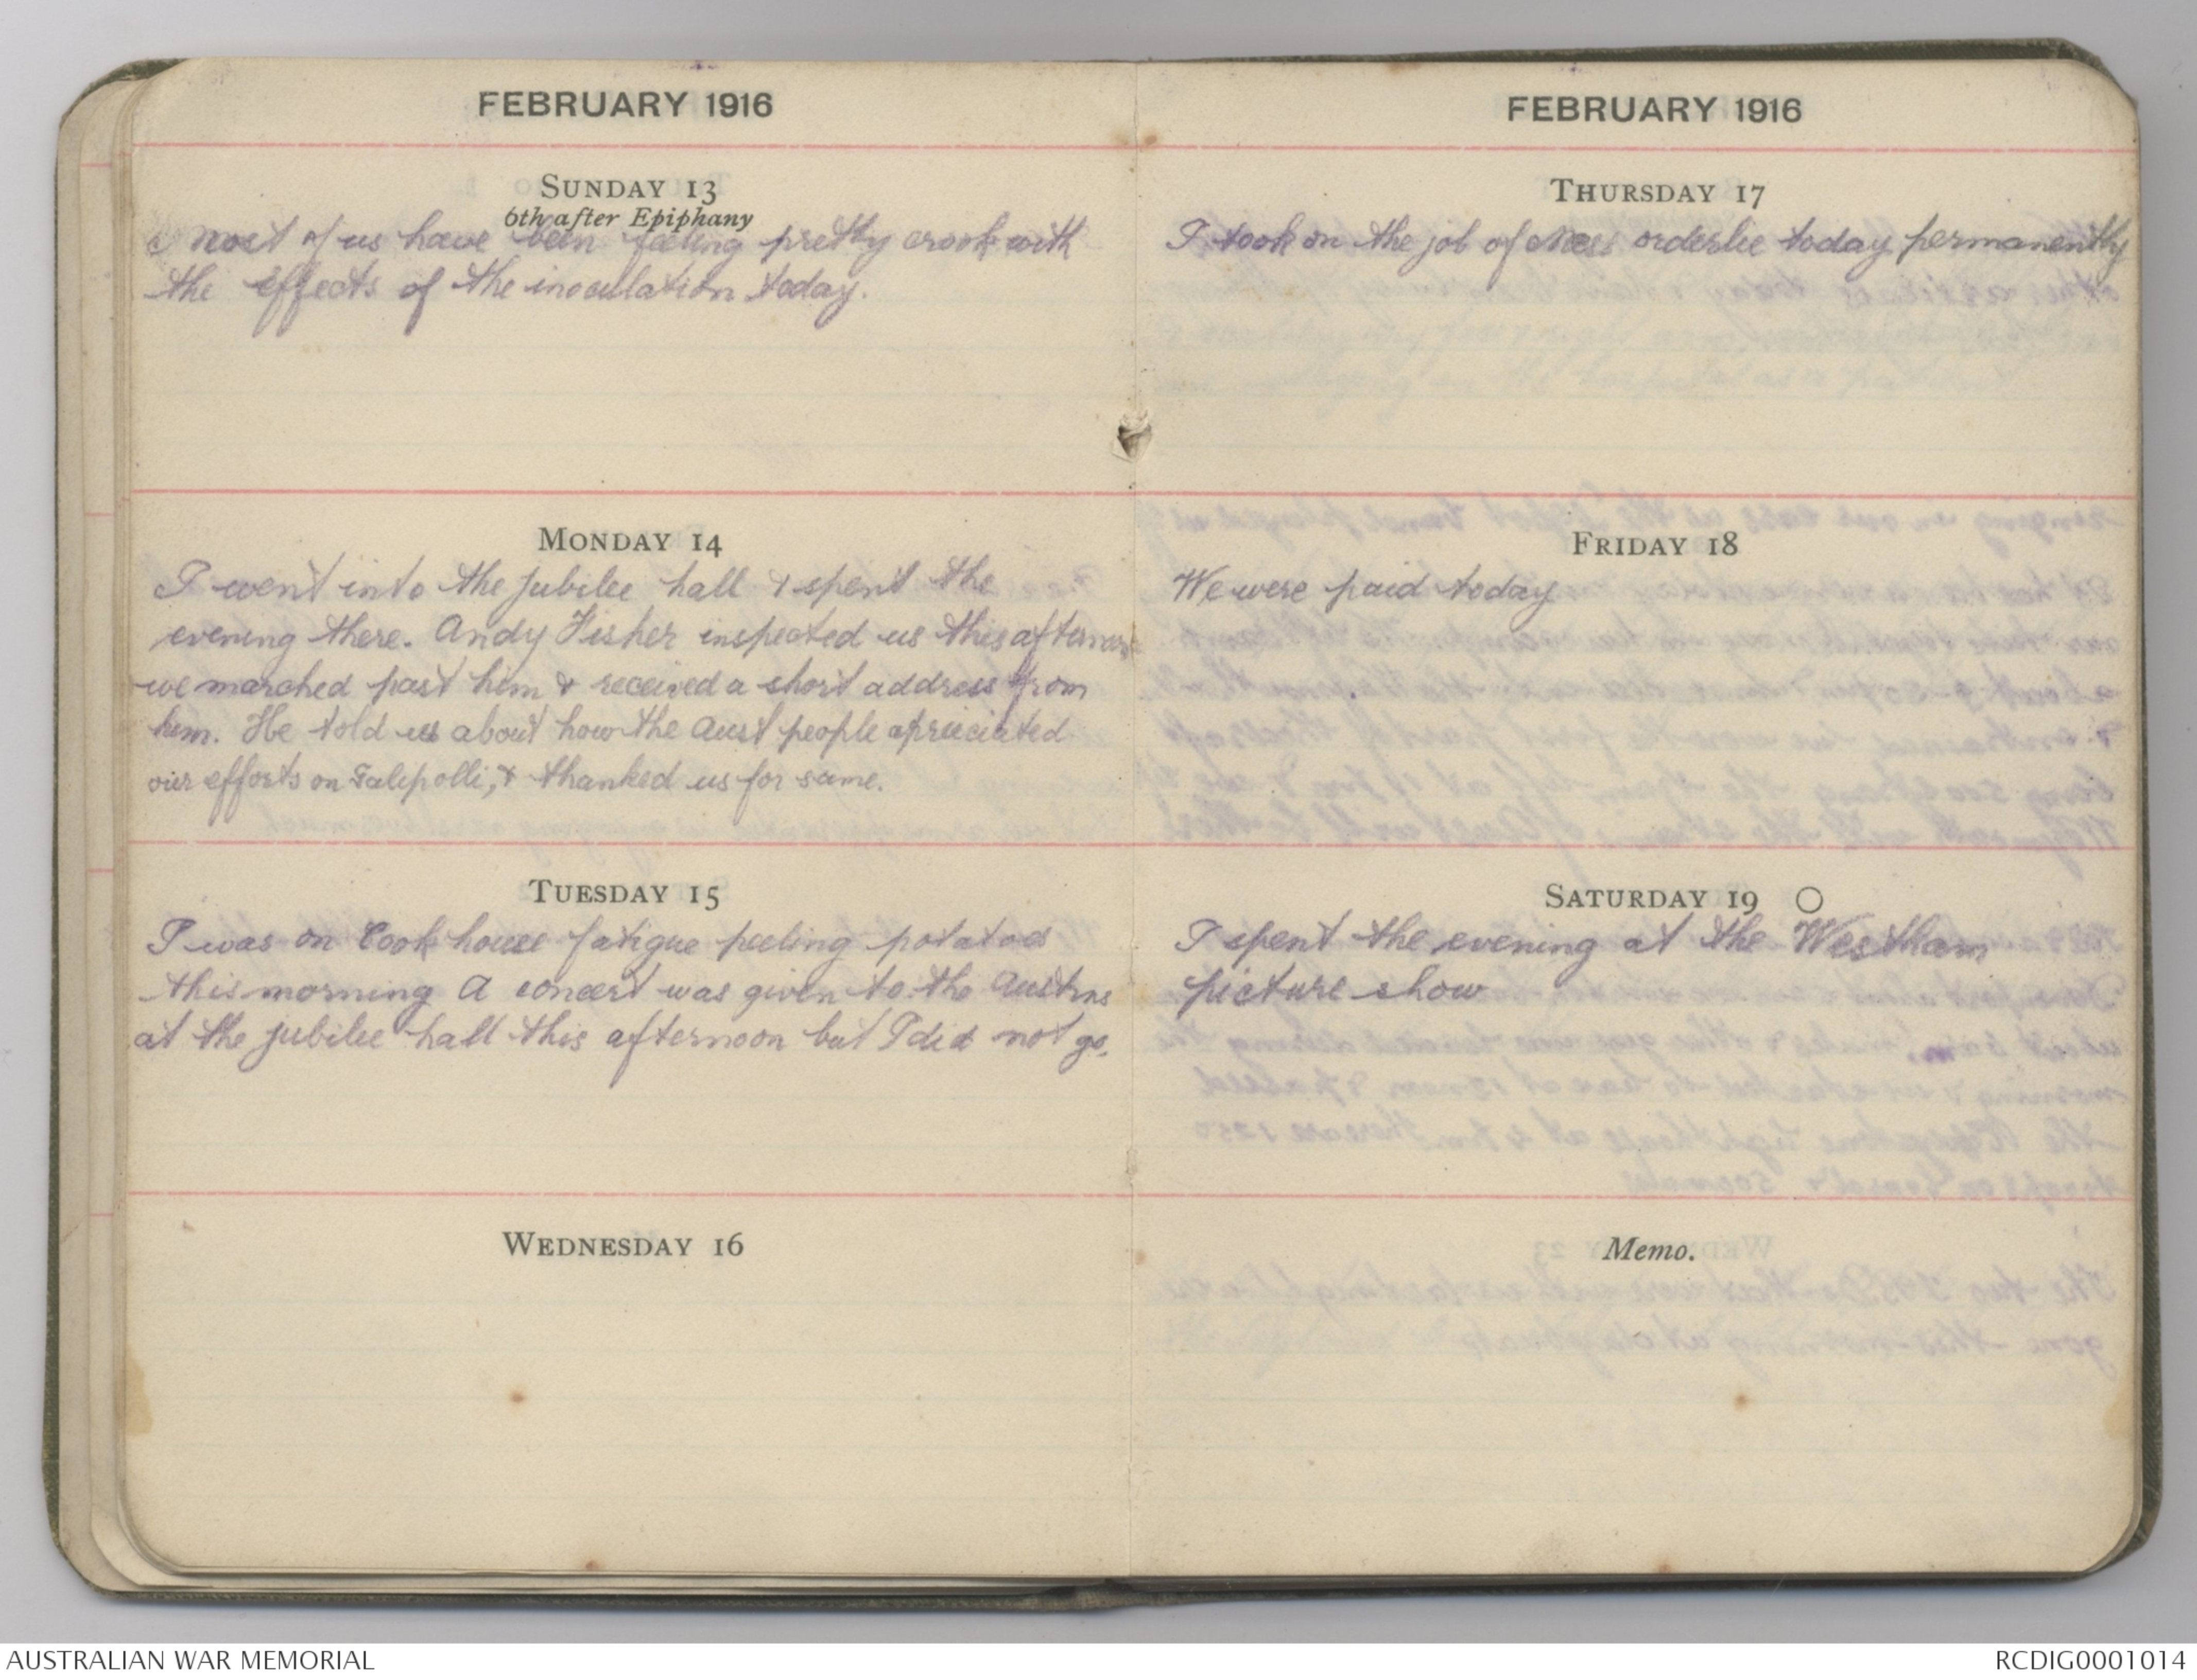 FEBRUARY 1916
SUNDAY 13
6th after Epiphany
Most of us have been feeling pretty crook with
the effects of the inoculation today.
MONDAY 14
I went into the Jubilee hall & spent the
evening there. Andy Fisher inspected us this afternoon
we marched past him & received a short address from
him. He told us about how the Aust people apriciated
our efforts on Galipolli, & thanked us for same.
TUESDAY 15
I was on Cook house fatigue peeling potatoes
this morning A concert was given to the Austrns
at the jubilee hall this afternoon but I did not go.
WEDNESDAY 16
FEBRUARY 1916
THURSDAY 17
I took on the job of Mess orderlee today permanently
FRIDAY 18
We were paid today
SATURDAY 19
I spent the evening at the Westham
picture show
Memo.
AUSTRALIAN WAR MEMORIAL
RCDIG0001014